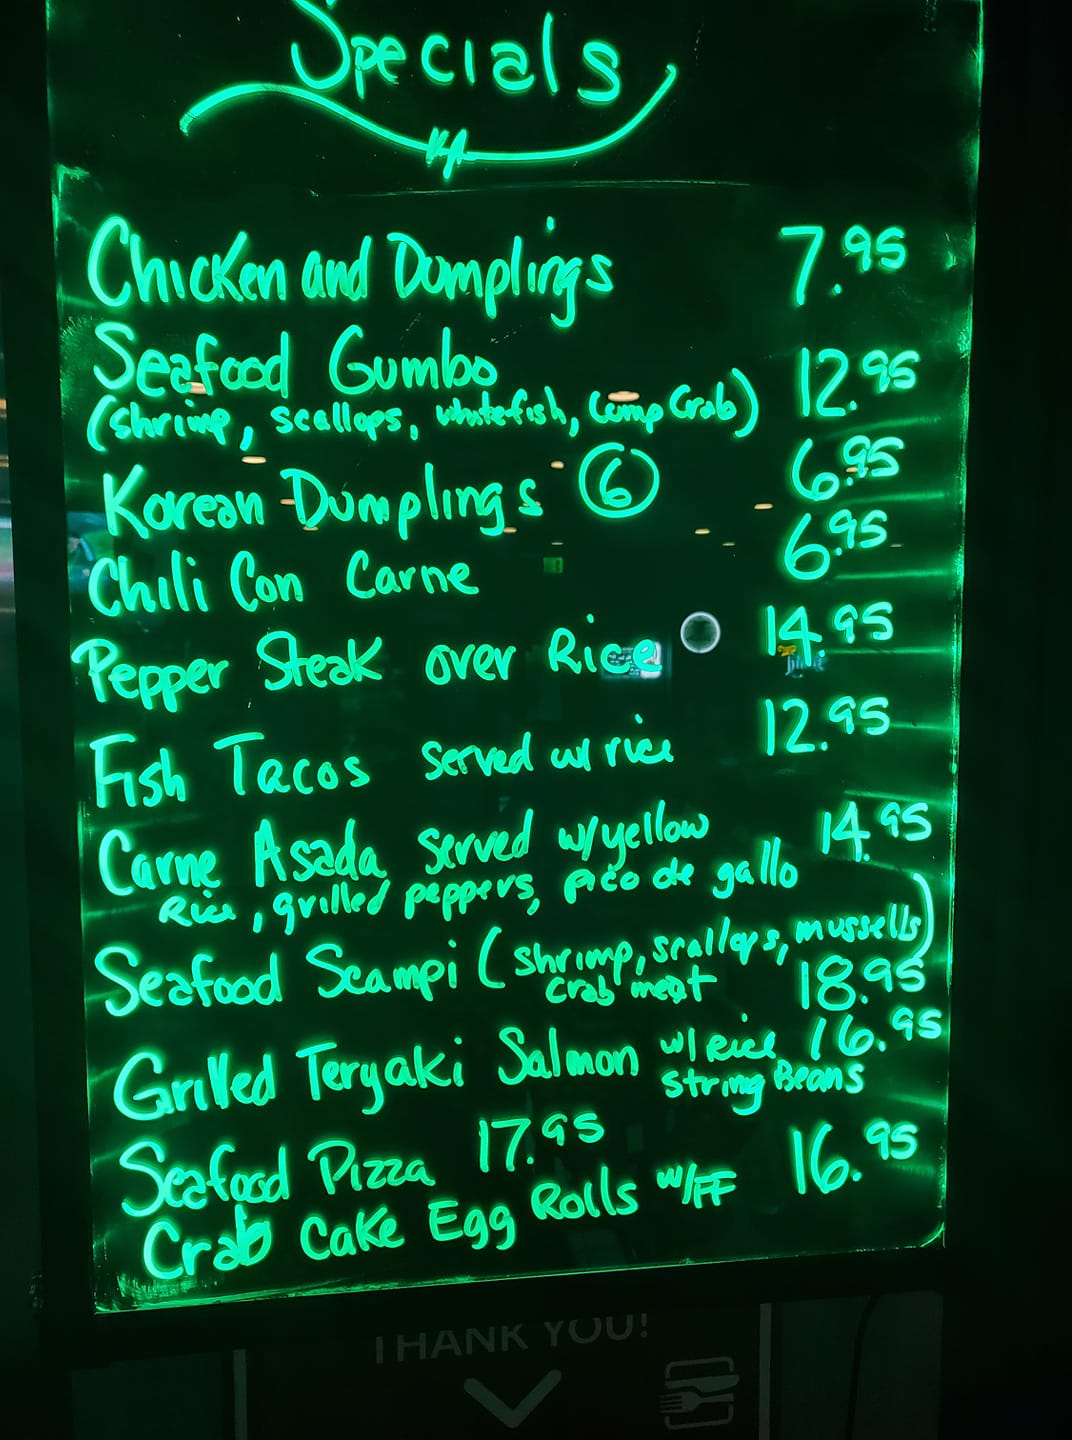 Specials
Chicken and Dumplings 7.95
Seafood Gumbo 12.95
(shrimp, scallops, whitefish, lump Crab)
Korean Dumplings 6 6.95
Chili Con Carne 6.95
Pepper Steak over Rice 14.95
Fish Tacos served w/ rice 12.95
Carne Asada served w/yellow 14.95
Rice, grilled peppers, pico de gallo
Seafood Scampi (shrimp, scallops, mussells)
crab meat 18.95
Grilled Teryaki Salmon w/ Rice 16.95
string Beans
Seafood Pizza 17.95
Crab Cake Egg Rolls w/FF 16.95
THANK YOU!